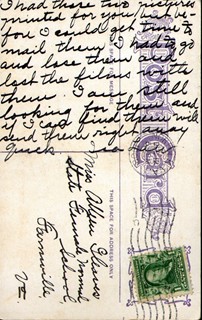 I had these two pictures
printed for you but be-
for I could get time to
mail them I had to go
and lose them and
last the films with
them I am still
looking for them and
if I can find them will
send them right away
quick
Miss
State Female Normal
School,
Farmville,
Va.
THIS SPACE FOR ADDRESS ONLY